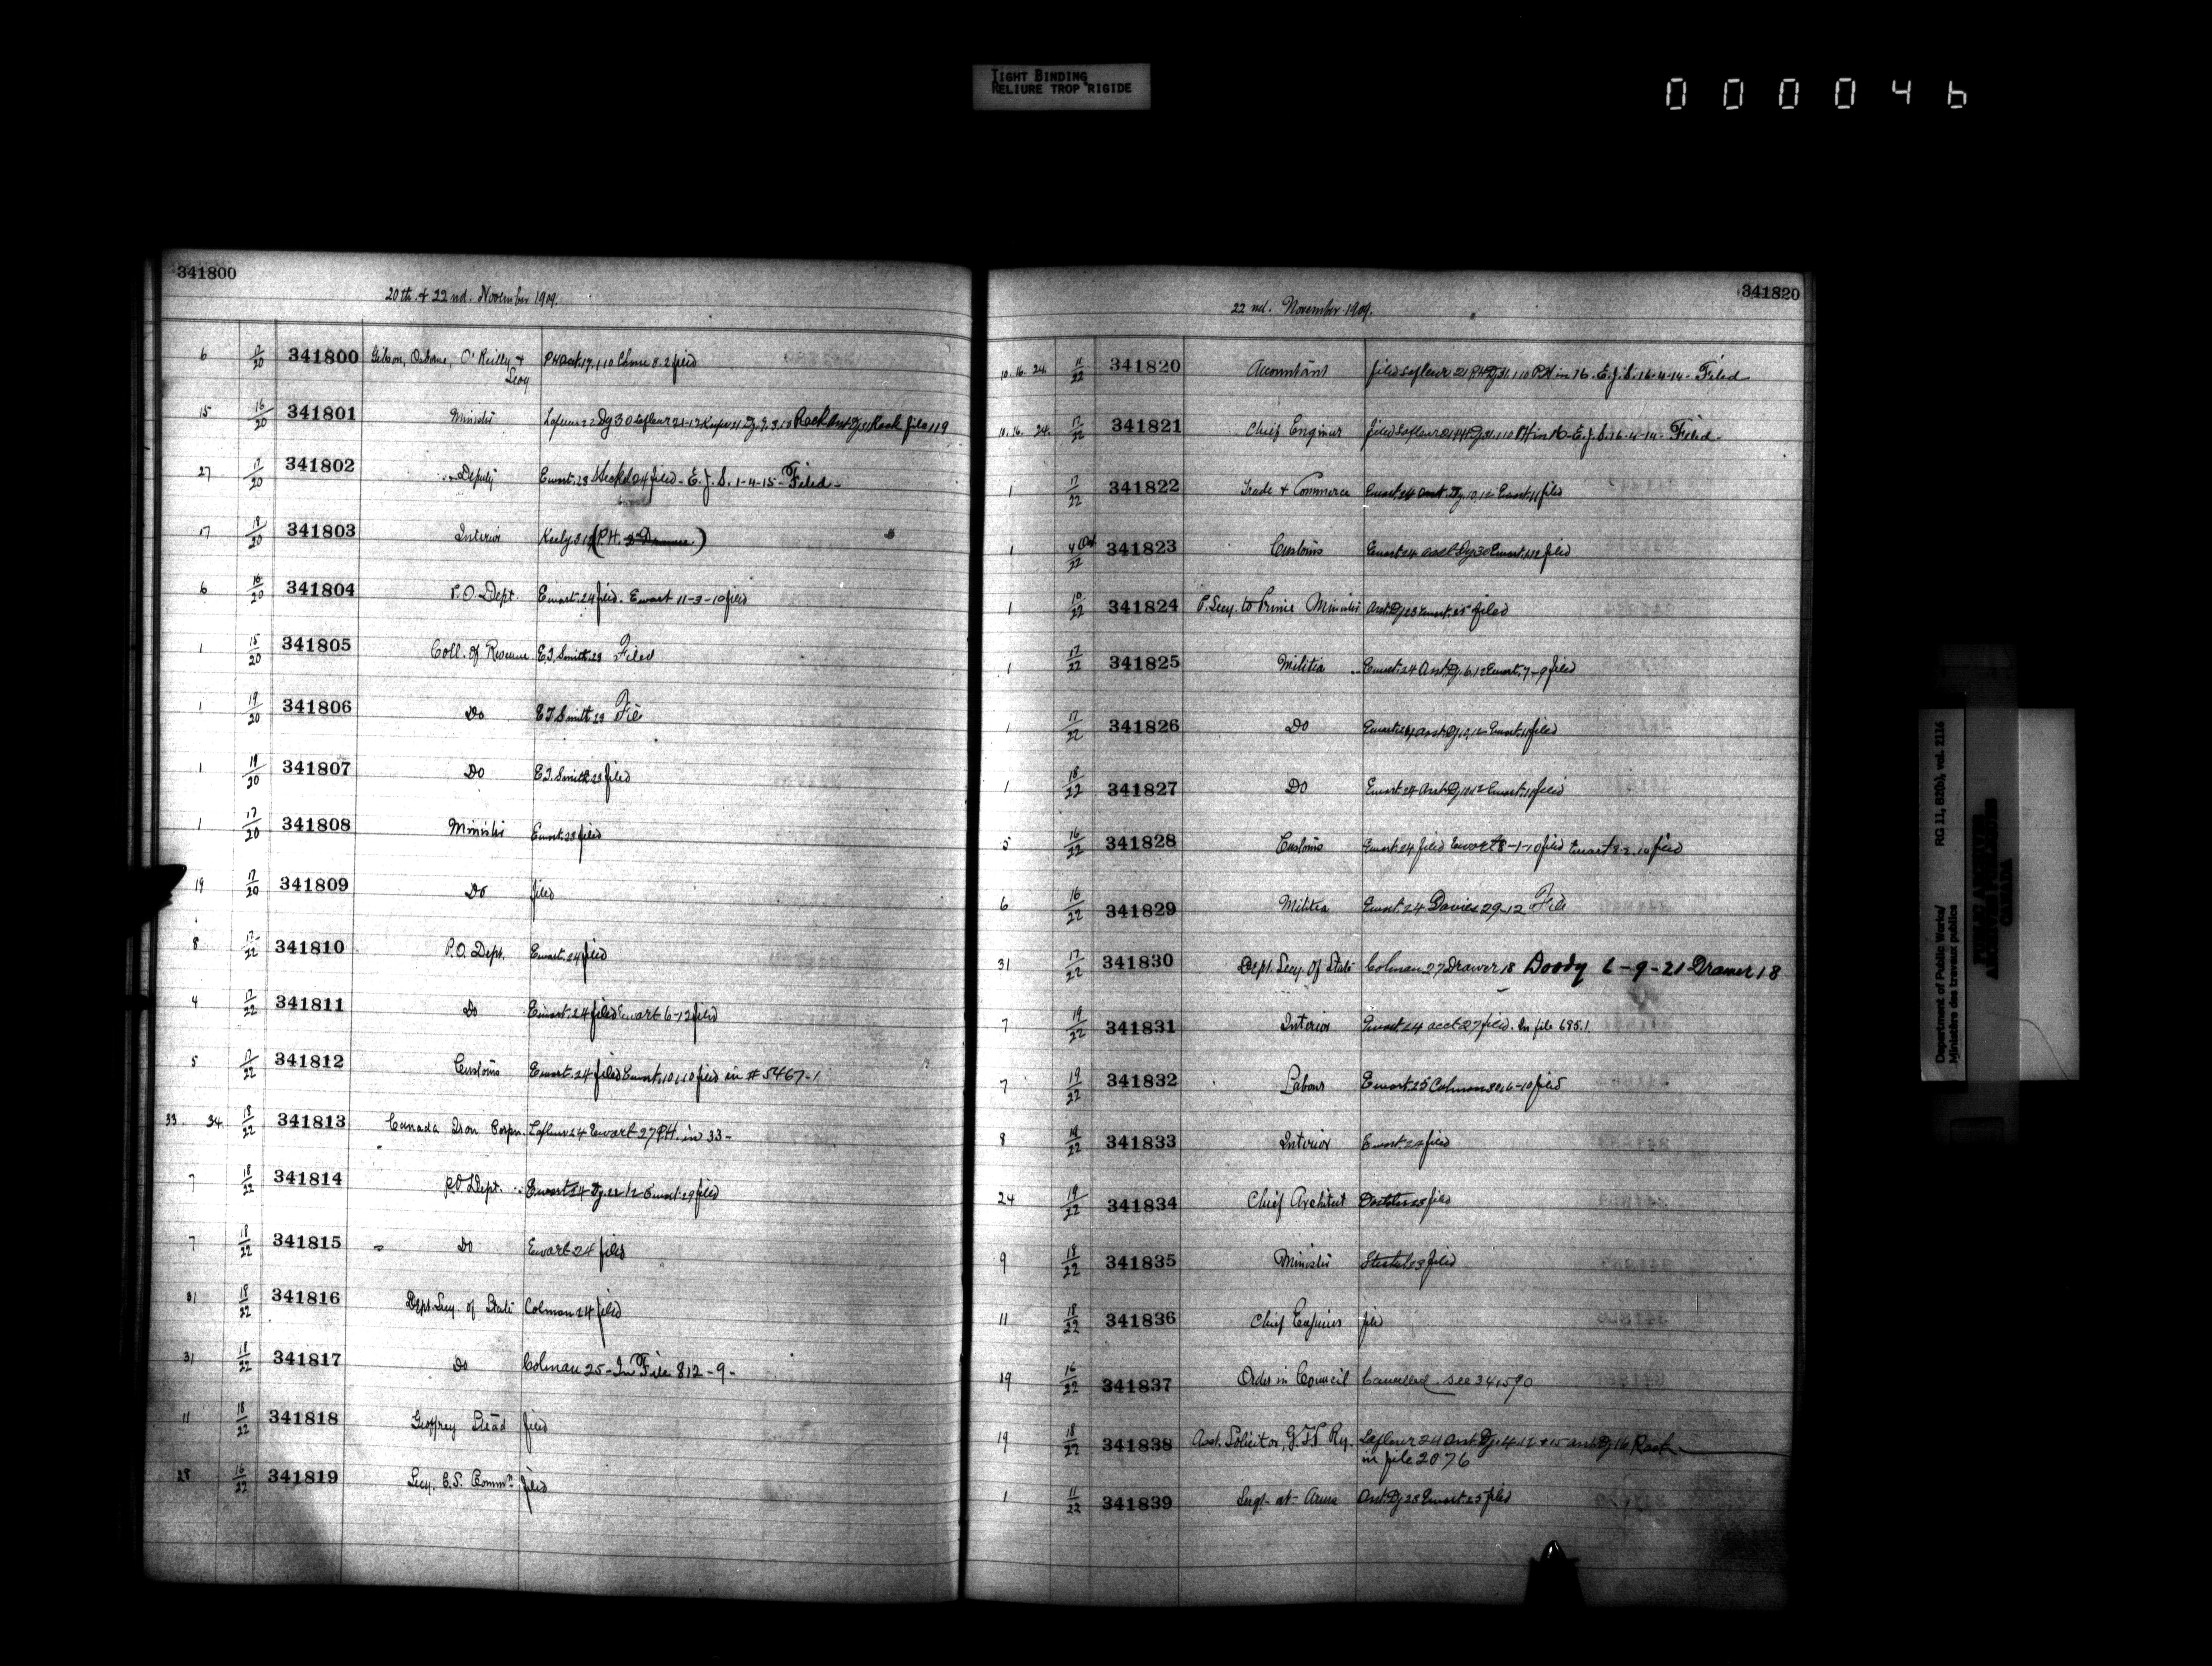 TIGHT BINDING
RELIURE TROP RIGIDE
000046
341800
20th & 22nd. November 1909.
6 17/20 341800 Gibson, Osborne, O'Reilly & Levy filed
15 16/20 341801 Minister Lafleur 22 Dy 30 Lafleur Rack file 119
27 17/20 341802 Deputy Ewart. 23 24 filed - E.J.S. 1-4-15 - Filed -
17 18/20 341803 Interior (P.H.
6 16/20 341804 P.O. Dept. Ewart. 24 filed. Ewart 11-3-10 filed
1 15/20 341805 Coll. of Revenue E.T. Smith. 23 Filed
1 19/20 341806 Do E.T. Smith 23 File
1 19/20 341807 Do E.T. Smith. 23 filed
1 17/20 341808 Minister Ewart. 23 filed
19 17/20 341809 Do filed
8 17/22 341810 P.O. Dept. Ewart. 24 filed
4 17/22 341811 Do Ewart. 24 filed Ewart 6-12 filed
5 17/22 341812 Customs Ewart. 24 filed Ewart. 10.1.10 filed in # 5467-1
33. 34. 18/22 341813 Canada Iron Corpn. Lafleur 24 Ewart 27 P.H. in 33-
7 18/22 341814 P.O. Dept. Ewart 24 Dy. 22 12 Ewart 29 filed
7 18/22 341815 Do Ewart 24 filed
31 18/22 341816 Dept. Secy. of State Colman 24 filed
31 18/22 341817 Do Colman 25 - In File 812-9-
11 18/22 341818 Geoffrey Stead filed
28 16/22 341819 Secy. C.S. Commn. filed
341820
22nd. November 1909.
10. 16. 24. 11/22 341820 Accountant filed Lafleur 21 P.H. in 16. E.J.S. 16-4-14 - Filed
10. 16. 24. 17/22 341821 Chief Engineer filed Lafleur P.H. in 16 - E.J.S. 16-4-14 - Filed
1 17/22 341822 Trade & Commerce Ewart 24 Dy. 10.12 Ewart. 11 filed
1 4 Oct/22 341823 Customs Ewart 24 Dy 30 Ewart filed
1 10/22 341824 P. Secy. to Prime Minister Asst. Dy 23 Ewart. 25 filed
1 17/22 341825 Militia Ewart. 24 Asst. Dy. 6.12 Ewart. 7-9 filed
1 17/22 341826 Do Ewart 24 Asst. Dy. Ewart. 10 filed
1 18/22 341827 Do Ewart 24 Asst. Dy Ewart. filed
5 16/22 341828 Customs Ewart. 24 filed Ewart 8-1-10 filed Ewart 8-2-10 filed
6 16/22 341829 Militia Ewart 24 Davies 29-12 File
31 17/22 341830 Dept. Secy. of State Colman 27 Drawer 18 Doody 6-9-21 Drawer 18
7 19/22 341831 Interior Ewart 24 acct 27 filed. In file 695.1
7 19/22 341832 Labour Ewart. 25 Colman filed
8 19/22 341833 Interior Ewart 24 filed
24 19/22 341834 Chief Architect filed
9 18/22 341835 Minister 23 filed
11 18/22 341836 Chief Engineer filed
19 16/22 341837 Order in Council Cancelled. see 341590
19 18/22 341838 Asst. Solicitor, G.T.P. Ry. Lafleur 24 Asst. Dy Asst. Dy 16 Rack
in file 2076
1 11/22 341839 Sergt-at-Arms Asst. Dy 23 Ewart. 25 filed
Department of Public Works/ RG 11, B2(b), vol. 2116
Ministère des travaux publics
PUBLIC ARCHIVES
ARCHIVES PUBLIQUES
CANADA